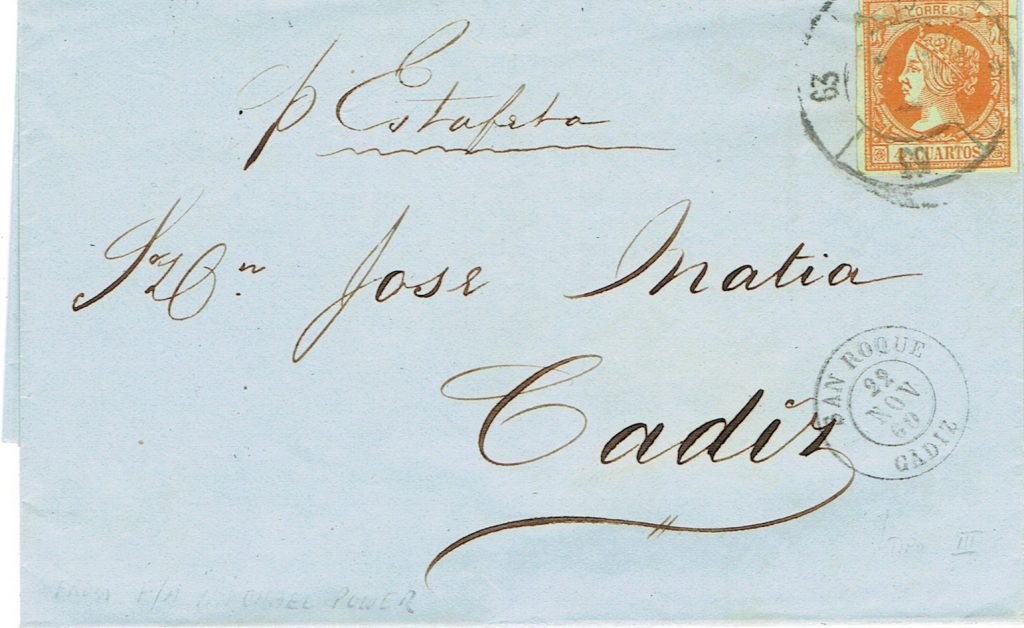 CORREOS
63
4 CUARTOS
p Estafeta
Sr Dn Jose Matia
Cadiz
SAN ROQUE
22
NOV
60
CADIZ
Tipo III
MICHAEL POWER